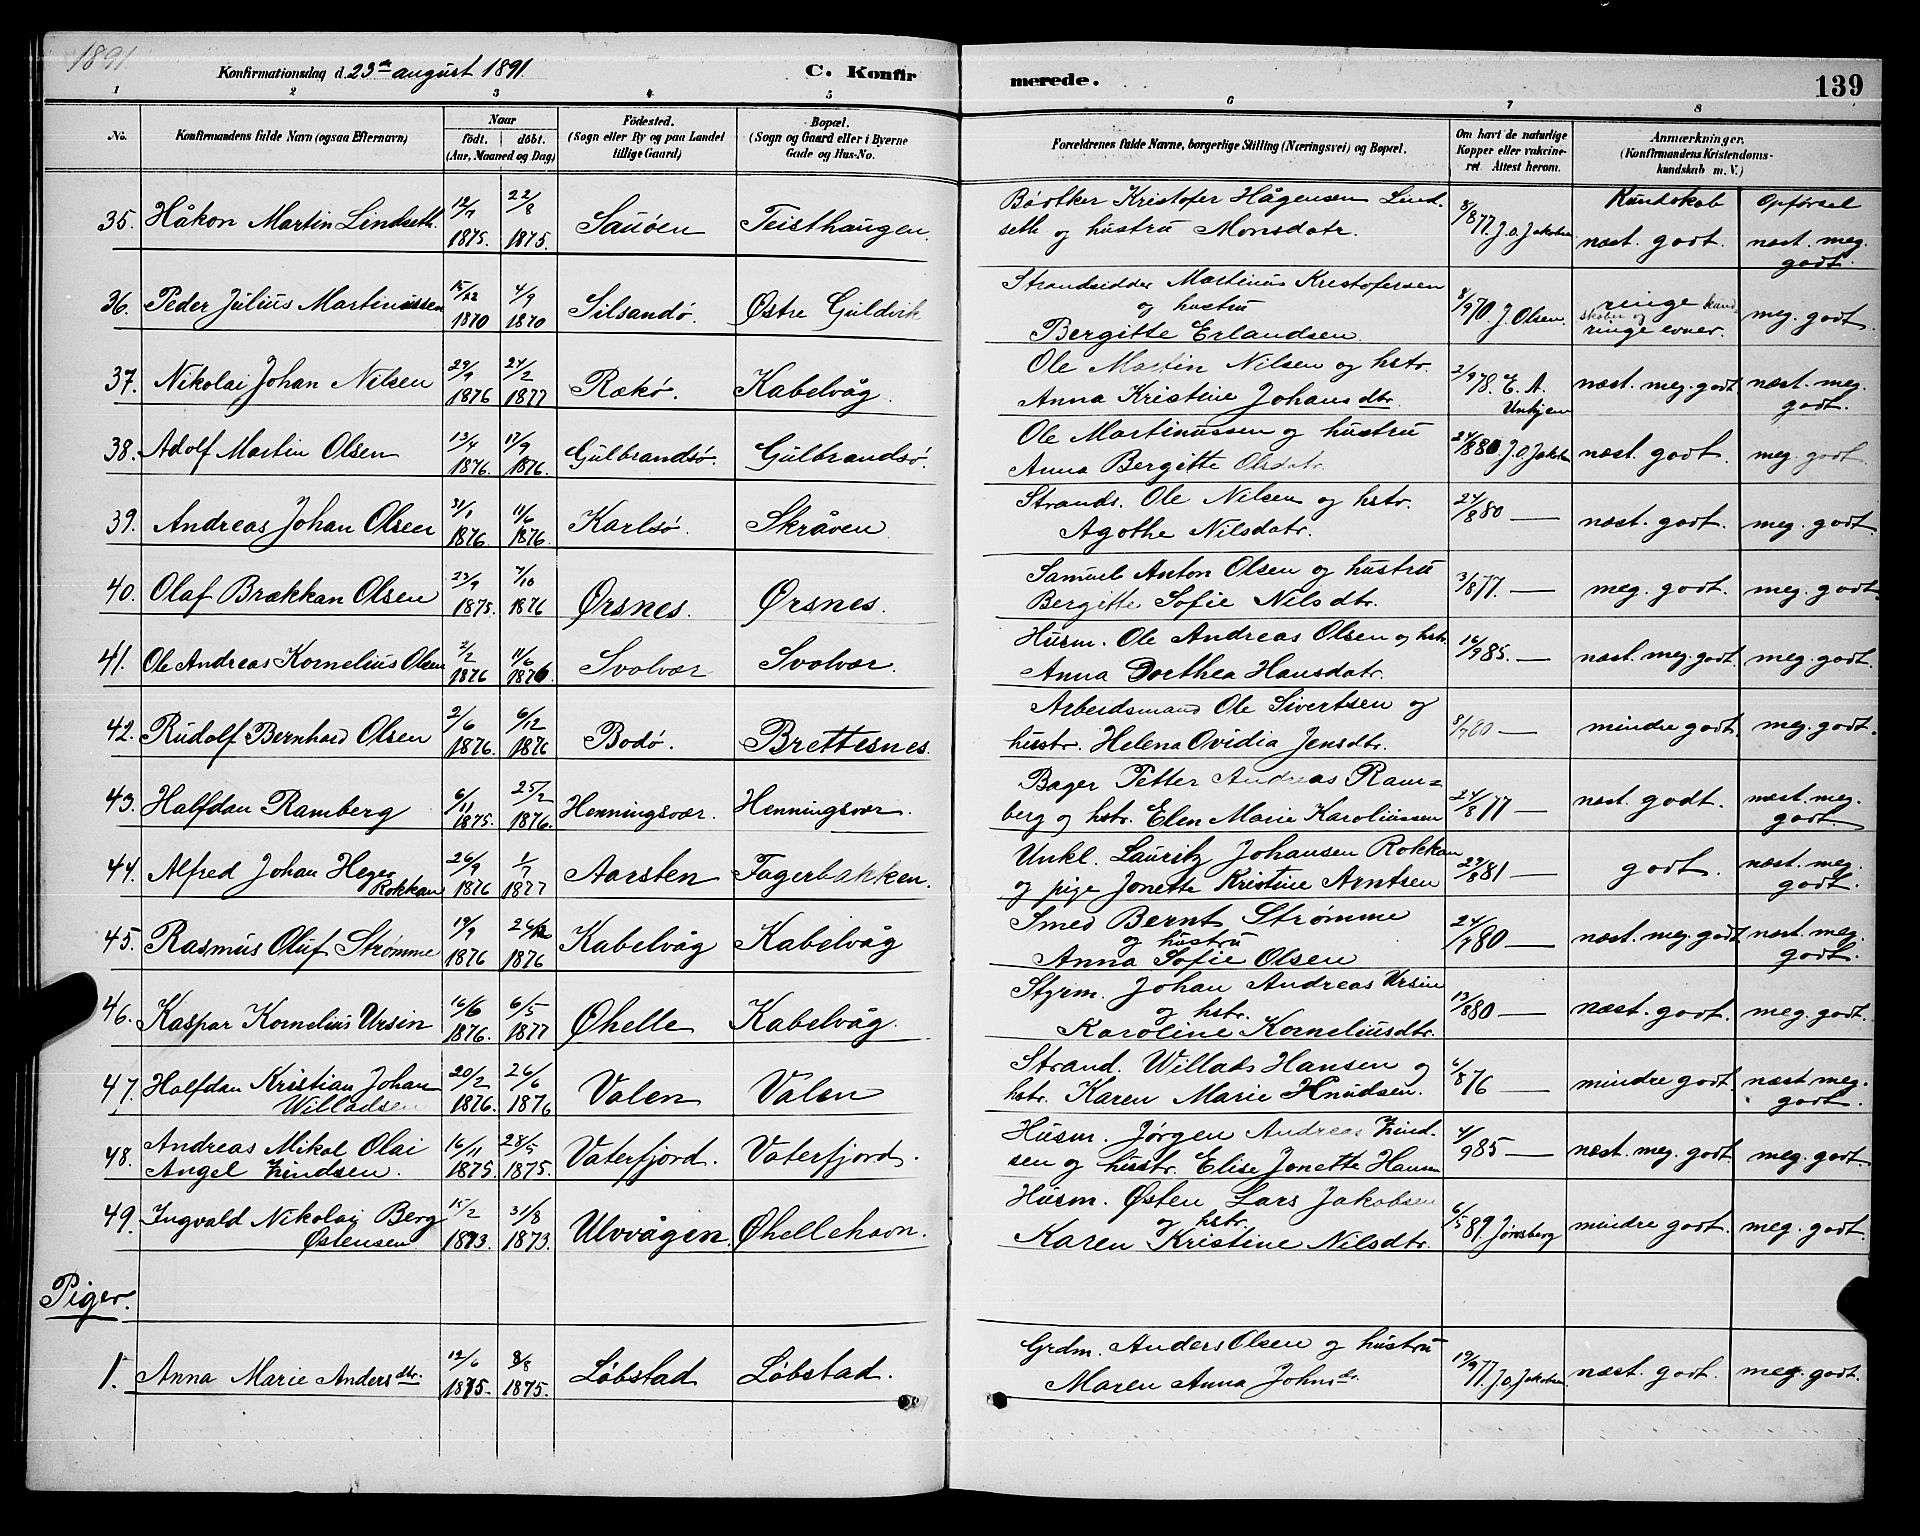 1891
Konfirmationsdag d. 23de august 1891.
C. Konfirmerede.
139
1 2 3 4 5 6 7 8
No.
Konfirmandens fulde Navn (ogsaa Efternavn)
Naar
födt. döbt.
(Aar, Maaned og Dag)
Födested.
(Sogn eller By og paa Landet
tillige Gaard)
Bopæl.
(Sogn og Gaard eller i Byerne
Gade og Hus-No.
Forældrenes fulde Navne, borgerlige Stilling (Næringsvei) og Bopæl.
Om havt de naturlige
Kopper eller vakcine-
ret. Attest herom.
Anmærkninger.
(Konfirmandens Kristendoms-
kundskab m. V.)
Kundskab Opførsel
35. Håkon Martin Lindseth. 12/7 1875. 22/8 1875. Sauøen Teisthaugen. Bødtker Kristofer Hågensen Lind-
seth og hustru Monsdatr. 8/8 77. J.O. Jakobsen næst. godt. næst. meg. godt.
36. Peder Julius Martinussen 1870 4/9 1870 Silsandø. Østre Guldvik Strandsidder Martinus Kristofersen
og hustru
Bergitte Erlandsen. 8/9 70. J. Olsen. ringe kund
skaber og
ringe evner. meg. godt.
37. Nikolai Johan Nilsen 29/9 1876 24/2 1877 Rækø. Kabelvåg. Ole Martin Nilsen og hstr.
Anna Kristine Johansdtr. 2/9 78. E. A. Unhjem næst. meg. godt næst. meg. godt.
38. Adolf Martin Olsen 13/4 1876. 17/9 1876. Gulbrandsø. Gulbrandsø. Ole Martinussen og hustru
Anna Bergitte Olsdatr. 24/8 80 J.O. Jakobsen næst. godt. meg. godt.
39. Andreas Johan Olsen 31/1 1876. 11/6 1876. Karlsø. Skråven Strands. Ole Nilsen og hstr.
Agathe Nilsdatr. 24/8 80 — næst. godt. meg. godt.
40. Olaf Brækkan Olsen 23/9 1875. 7/10 1876 Ørsnes. Ørsnes. Samuel Anton Olsen og hustru
Bergitte Sofie Nilsdtr. 3/8 77. — meg. godt. meg. godt.
41. Ole Andreas Kornelius Olsen 2/2 1876 11/6 1876. Svolvær Svolvær. Husm. Ole Andreas Olsen og hstr.
Anna Dorthea Hansdatr. 16/9 85. — næst. meg. godt. meg. godt.
42. Rudolf Bernhard Olsen 2/6 1876. 6/12 1876 Bodø. Brettesnes. Arbeidsmand Ole Sivertsen og
hustr. Helena Ovidia Jensdtr. 80 — mindre godt. meg. godt.
43. Halfdan Ramberg 6/11 1875. 25/2 1876. Henningsvær. Henningsvær. Bager Petter Andreas Ram-
berg og hstr. Elen Marie Karoliussen 24/8 77 — næst. godt. næst. meg. godt.
44. Alfred Johan Heger
Rokkan 26/9 1876 1/7 1877 Aarsten Fagerbakken. Unkl. Lauritz Johansen Rokkan
og pige Jonette Kristine Arntsen 29/8 81 — godt. næst. meg. godt.
45. Rasmus Oluf Strømme 19/9 1876 26/12 1876 Kabelvåg Kabelvåg Smed Bernt Strømme
og hustru
Anna Sofie Olsen 80 — næst. meg. godt næst. meg. godt.
46. Kaspar Kornelius Ursin 16/6 1876. 6/5 1877 Øhelle Kabelvåg. Styrm. Johan Andreas Ursin
og hstr.
Karoline Korneliusdtr. 13/8 80 — næst. godt. meg. godt.
47. Halfdan Kristian Johan
Willadsen 20/2 1876. 26/6 1876 Valen Valen Strand. Willads Hansen og
hstr. Karen Marie Knudsen. 6/8 76 — mindre godt. næst meg. godt.
48. Andreas Mikal Olai
Angel Zindsen. 16/11 1875. 28/5 1875. Vaterfjord. Vaterfjord. Husm. Jørgen Andreas Zind-
sen og hustr. Elise Jonette Hansen 4/9 85 — næst. meg. godt. meg. godt.
49. Ingvald Nikolaij Berg
Østensen 15/2 1873. 31/8 1873. Ulvvågen. Øhellehavn. Husm. Østen Lars Jakobsen
og hstr.
Karen Kristine Nilsdtr. 6/5 89. Jønsberg mindre godt. meg. godt.
Piger.
1. Anna Marie Andersdtr. 12/6 1875. 8/8 1875. Løbstad Løbstad. Grdm. Anders Olsen og hustru
Maren Anna Johnsdr. 19/9 77 J.O. Jakobsen næst. godt. meg. godt.